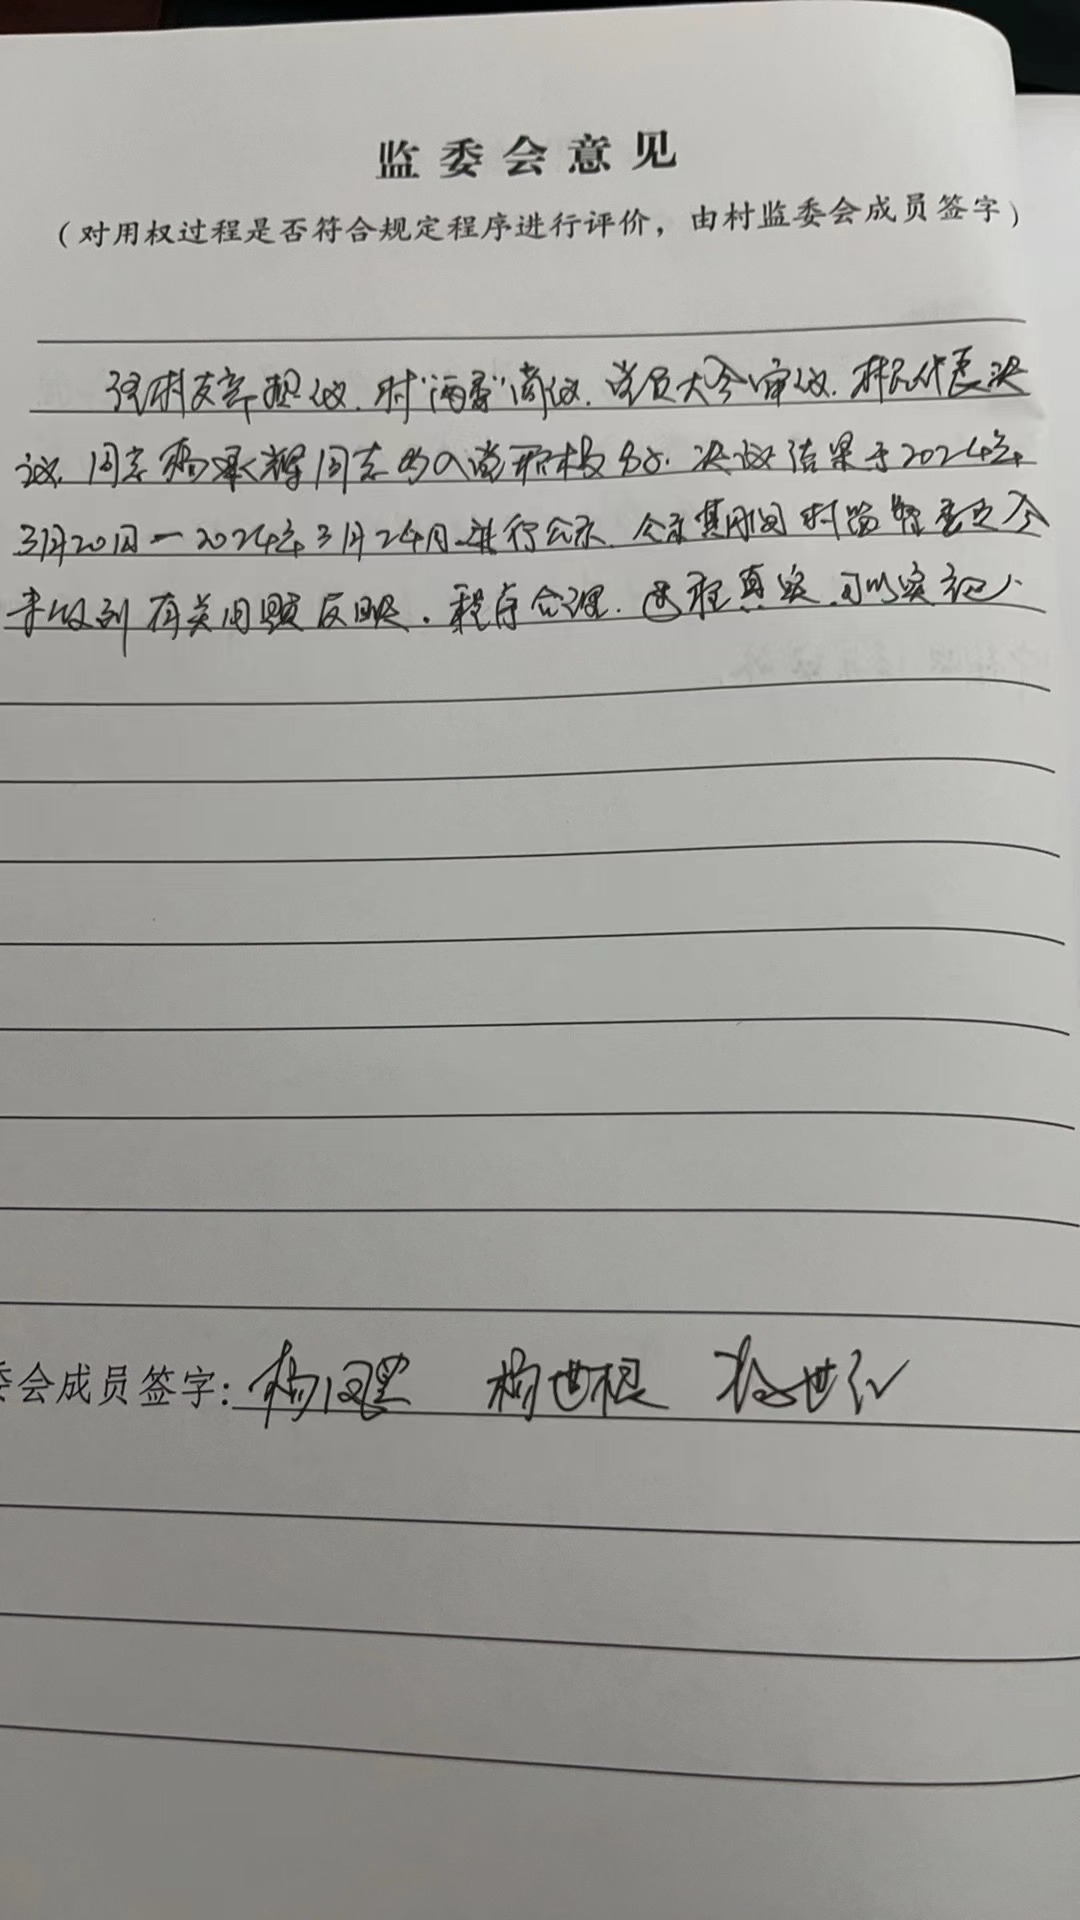 监委会意见
（对用权过程是否符合规定程序进行评价，由村监委会成员签字）
经村支部提议、村“两委”商议、党员大会审议、村民代表决
议、同志杨承辉同志的入党积极分子。决议结果于2024年
3月20日一2024年3月24日进行公示、公示其间村监督委员会
未收到有关问题反映。程序合理、过程真实、可以实施。
委会成员签字：杨 杨世根 杨世红